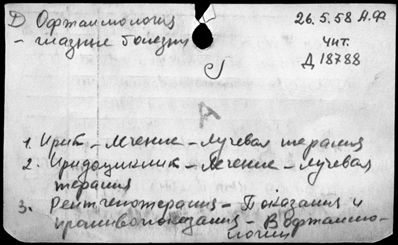 Д Офтальмология 26.5.58 А.Ф
- глазные болезни Чит.
Д 18788
А
1. Ирит - лечение - лучевая терапия
2. Иридоциклит - лечение - лучевая
терапия
3. Рентгенотерапия - Показания и
противопоказания - В офтальмо-
логии